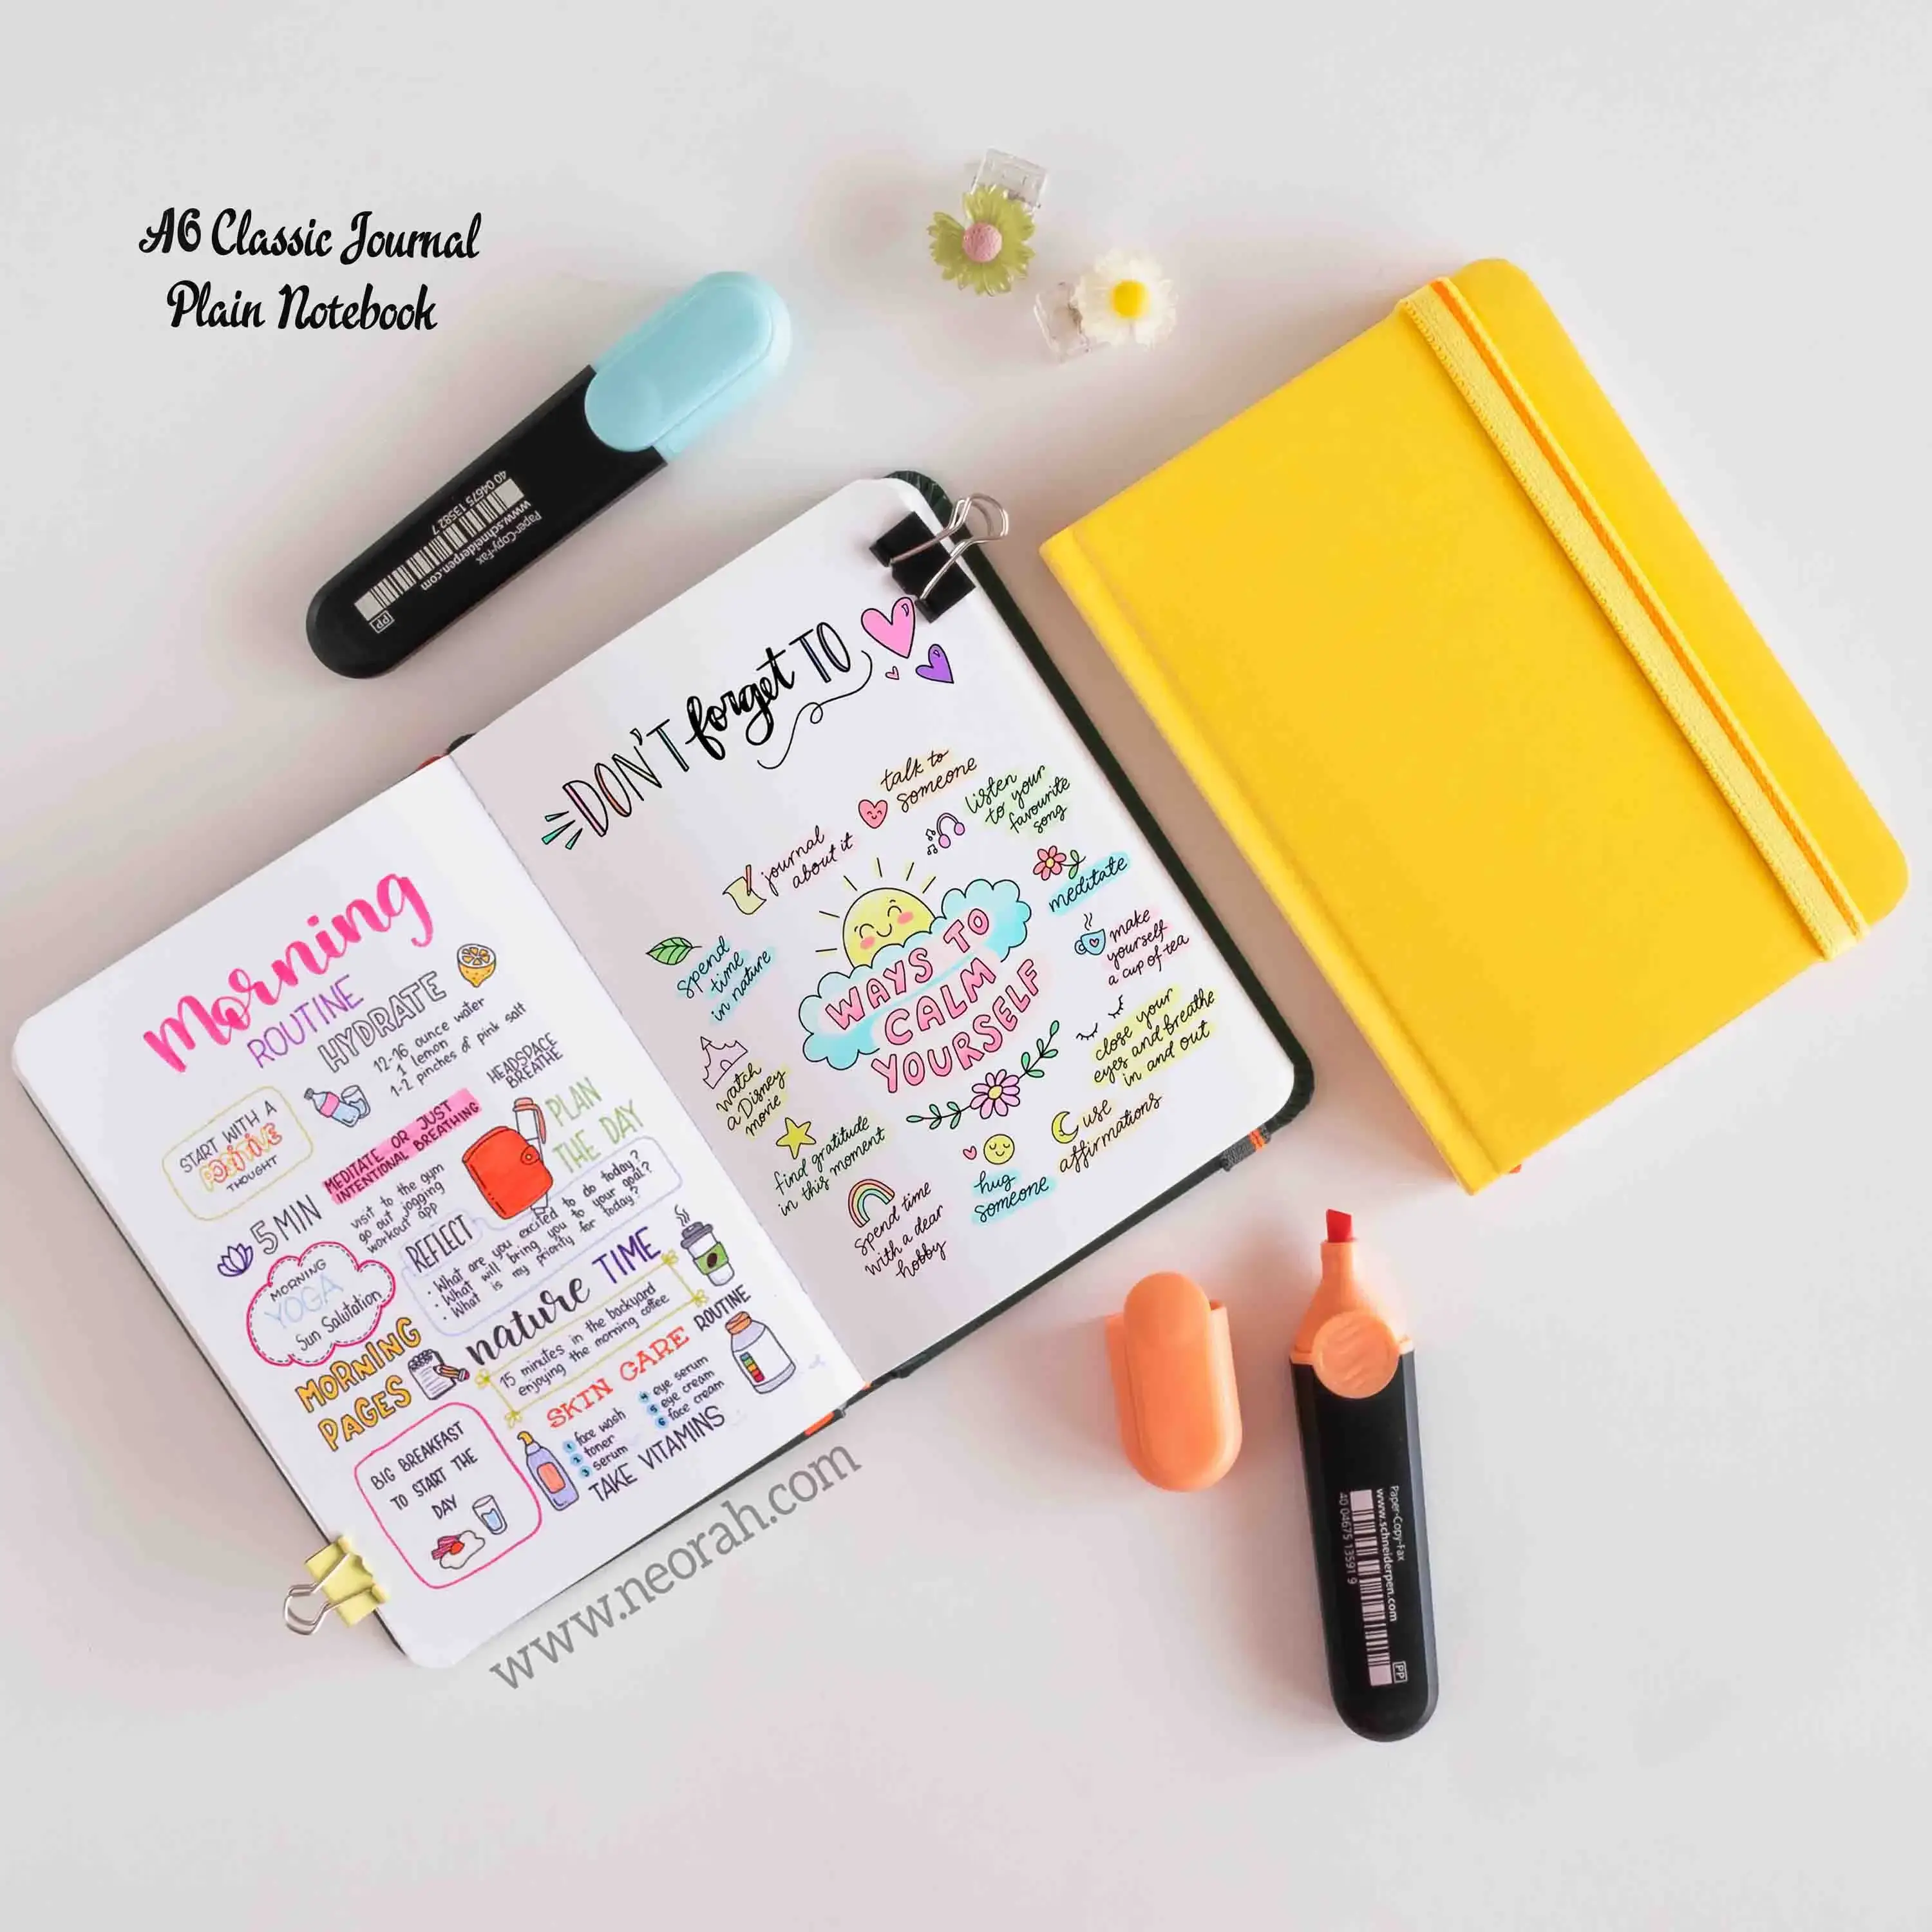 A6 Classic Journal
Plain Notebook
Paper-Copy-Fax
www.schneiderpen.com
40 04675 13582 7
PP
Morning
ROUTINE
HYDRATE
12-16 ounce water
1 lemon
1-2 pinches of pink salt
START WITH A
POSITIVE
THOUGHT
MEDITATE OR JUST
INTENTIONAL BREATHING
HEADSPACE
BREATHE
5 MIN
visit to the gym
go out jogging
workout app
PLAN
THE DAY
REFLECT
• What are you excited to do today?
• What will bring you to your goal?
• What is my priority for today?
MORNING
YOGA
Sun Salutation
nature TIME
15 minutes in the backyard
enjoying the morning coffee
MORNING
PAGES
SKIN CARE ROUTINE
1 face wash
2 toner
3 serum
4 eye serum
5 eye cream
6 face cream
TAKE VITAMINS
BIG BREAKFAST
TO START THE
DAY
DON'T forget TO
talk to
someone
listen
to your
favourite
song
journal
about it
meditate
spend
time
in nature
make
yourself
a cup of tea
WAYS TO
CALM
YOURSELF
close your
eyes and breathe
in and out
watch
a Disney
movie
use
affirmations
find gratitude
in this moment
hug
someone
spend time
with a dear
hobby
www.neorah.com
Paper-Copy-Fax
www.schneiderpen.com
40 04675 13591 9
PP